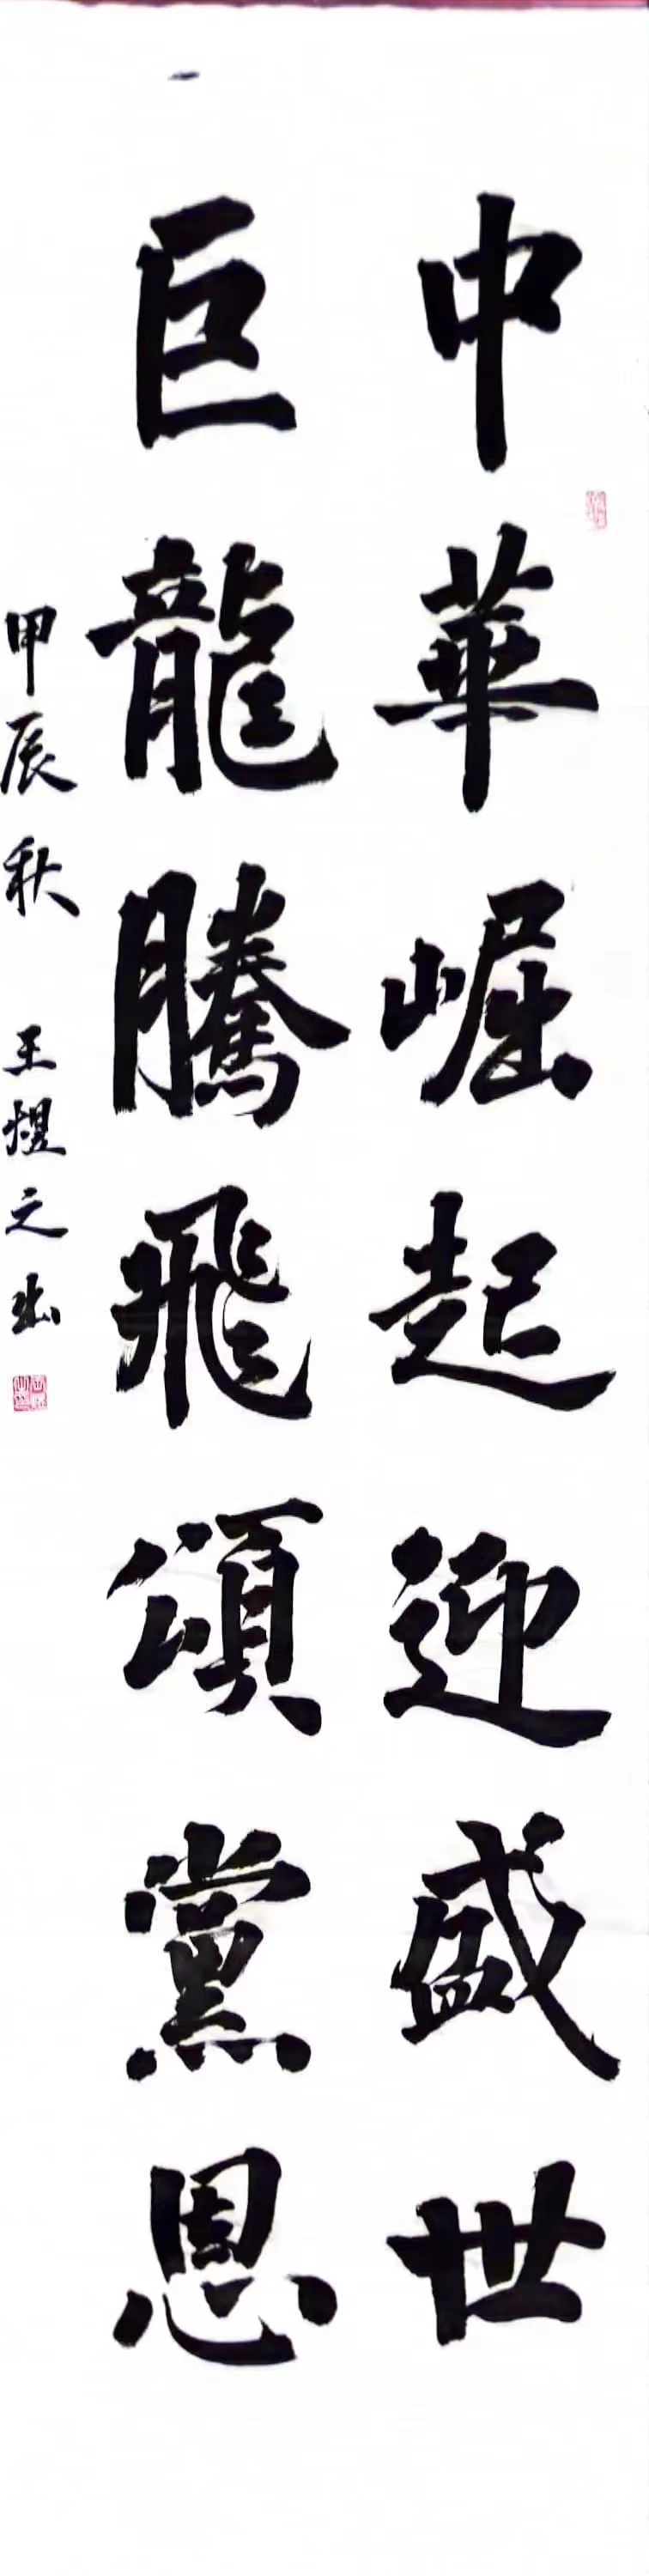 中華崛起迎盛世
巨龍騰飛頌黨恩
甲辰秋 王煜之書